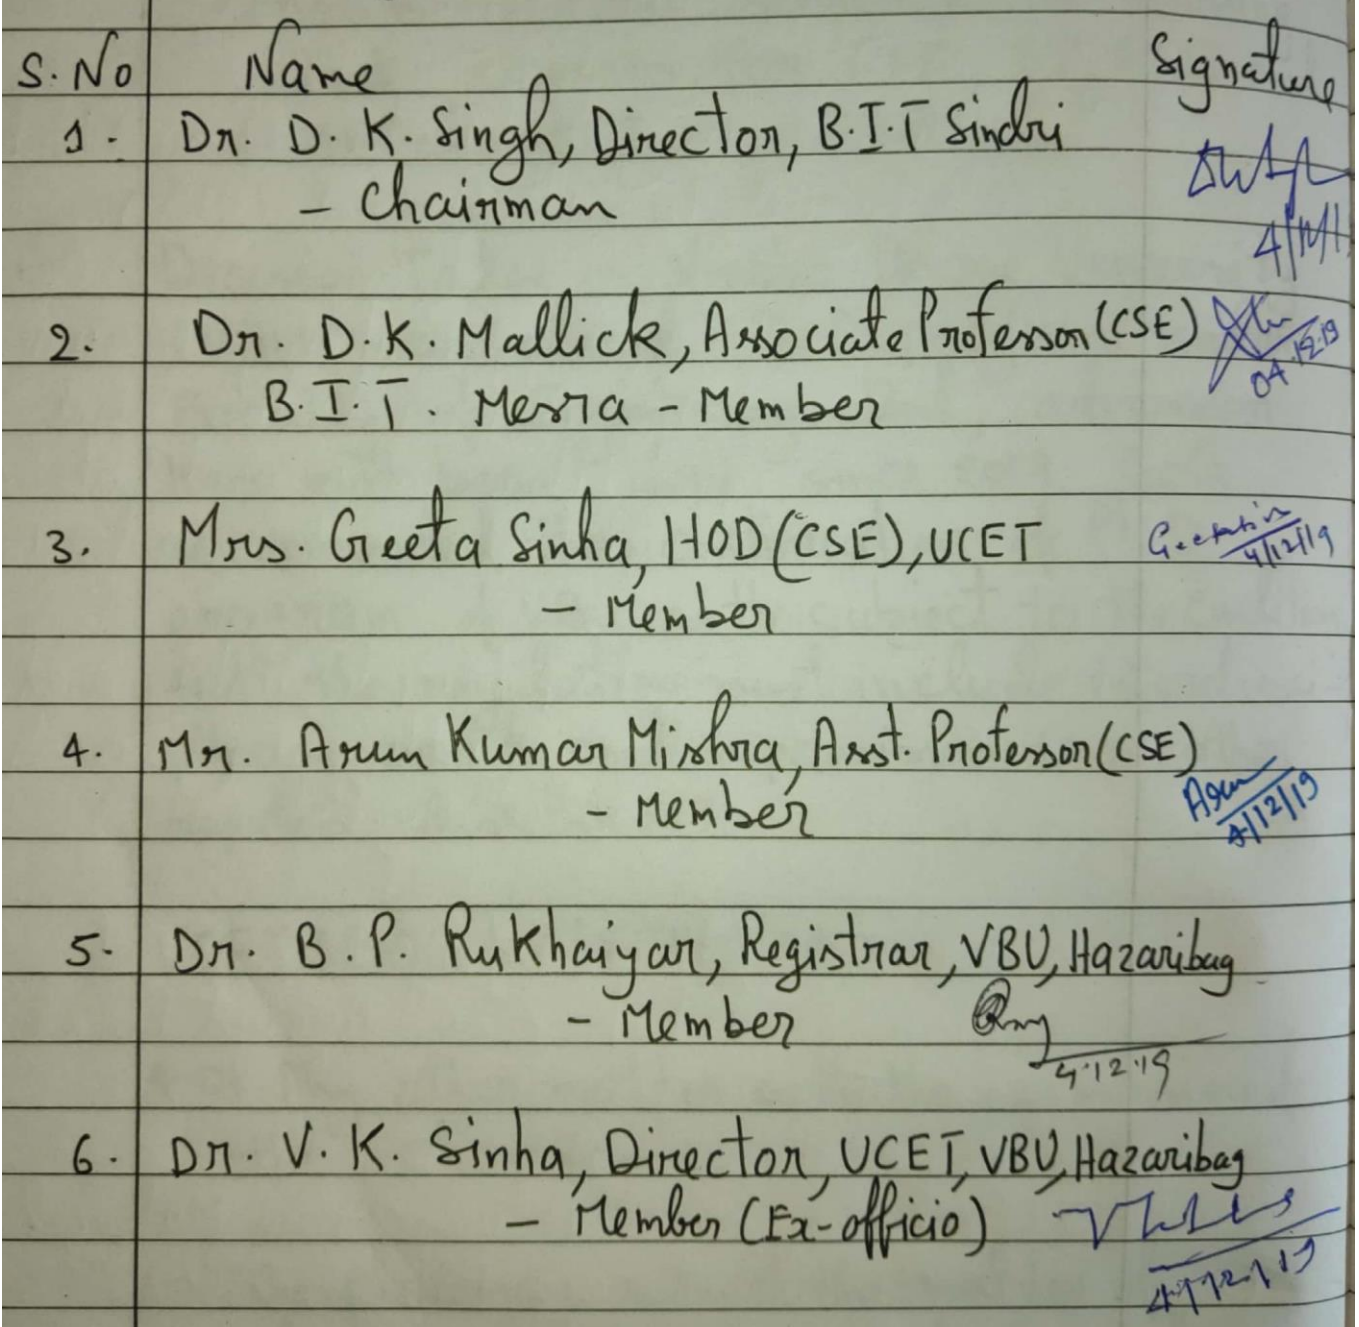 S.No Name Signature
1. Dr. D. K. Singh, Director, B.I.T Sindri
- Chairman
2. Dr. D.K. Mallick, Associate Professor (CSE)
04.12.19
B.I.T. Mesra - Member
3. Mrs. Geeta Sinha, HOD (CSE), UCET
4/12/19
- Member
4. Mr. Arun Kumar Mishra, Asst. Professor (CSE)
- Member Arun
4/12/19
5. Dr. B.P. Rukhaiyar, Registrar, VBU, Hazaribag
- Member
4.12.19
6. Dr. V.K. Sinha, Director, UCET, VBU, Hazaribag
- Member (Ex-officio)
4/12/19